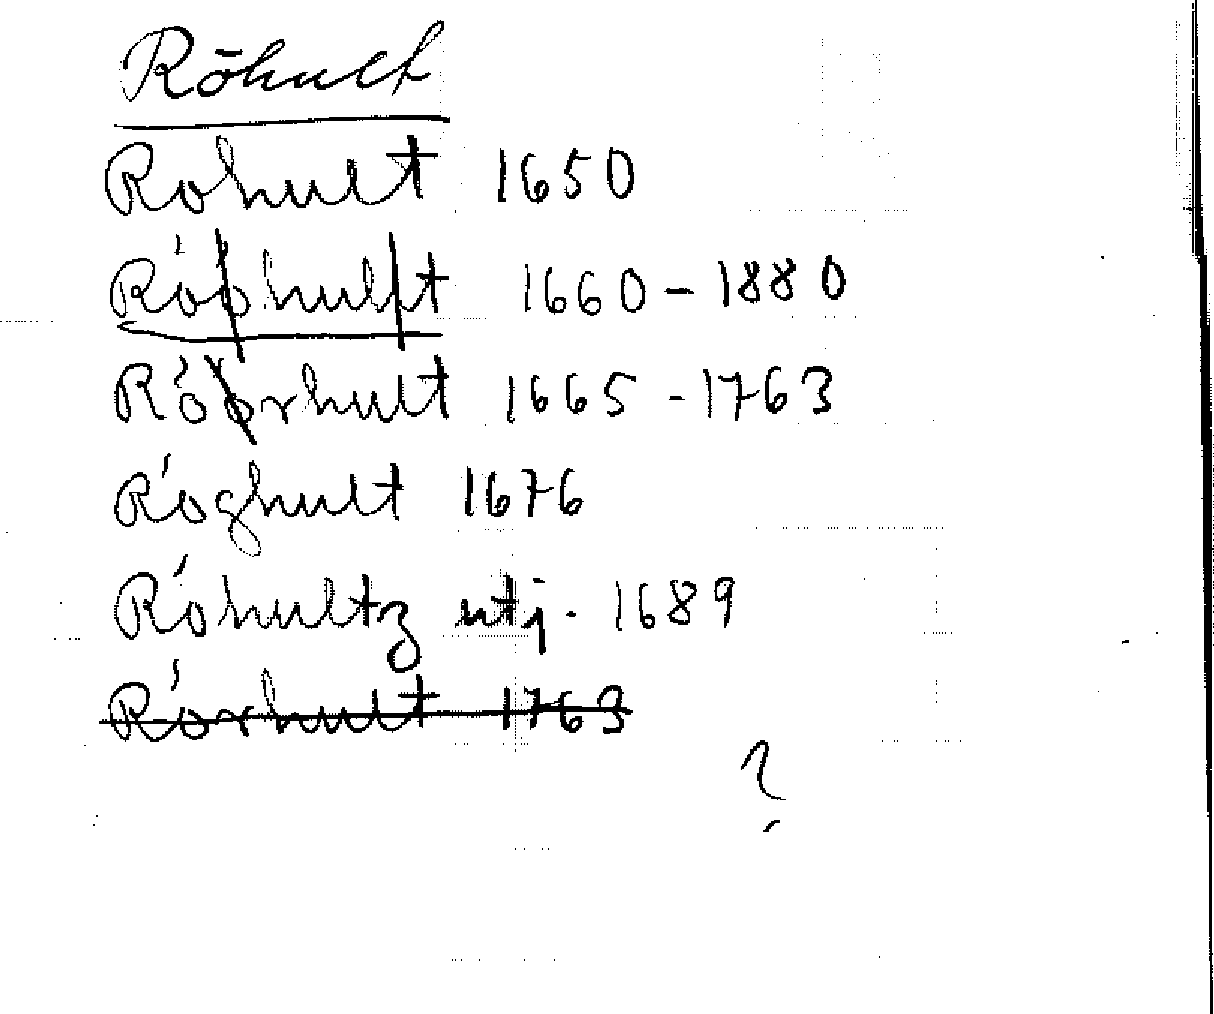 Röhult
Rohult 1650
Róhult 1660 - 1880
Rórhult 1665 - 1763
Róghult 1676
Róhultz utj. 1689
Rórhult 1763
?